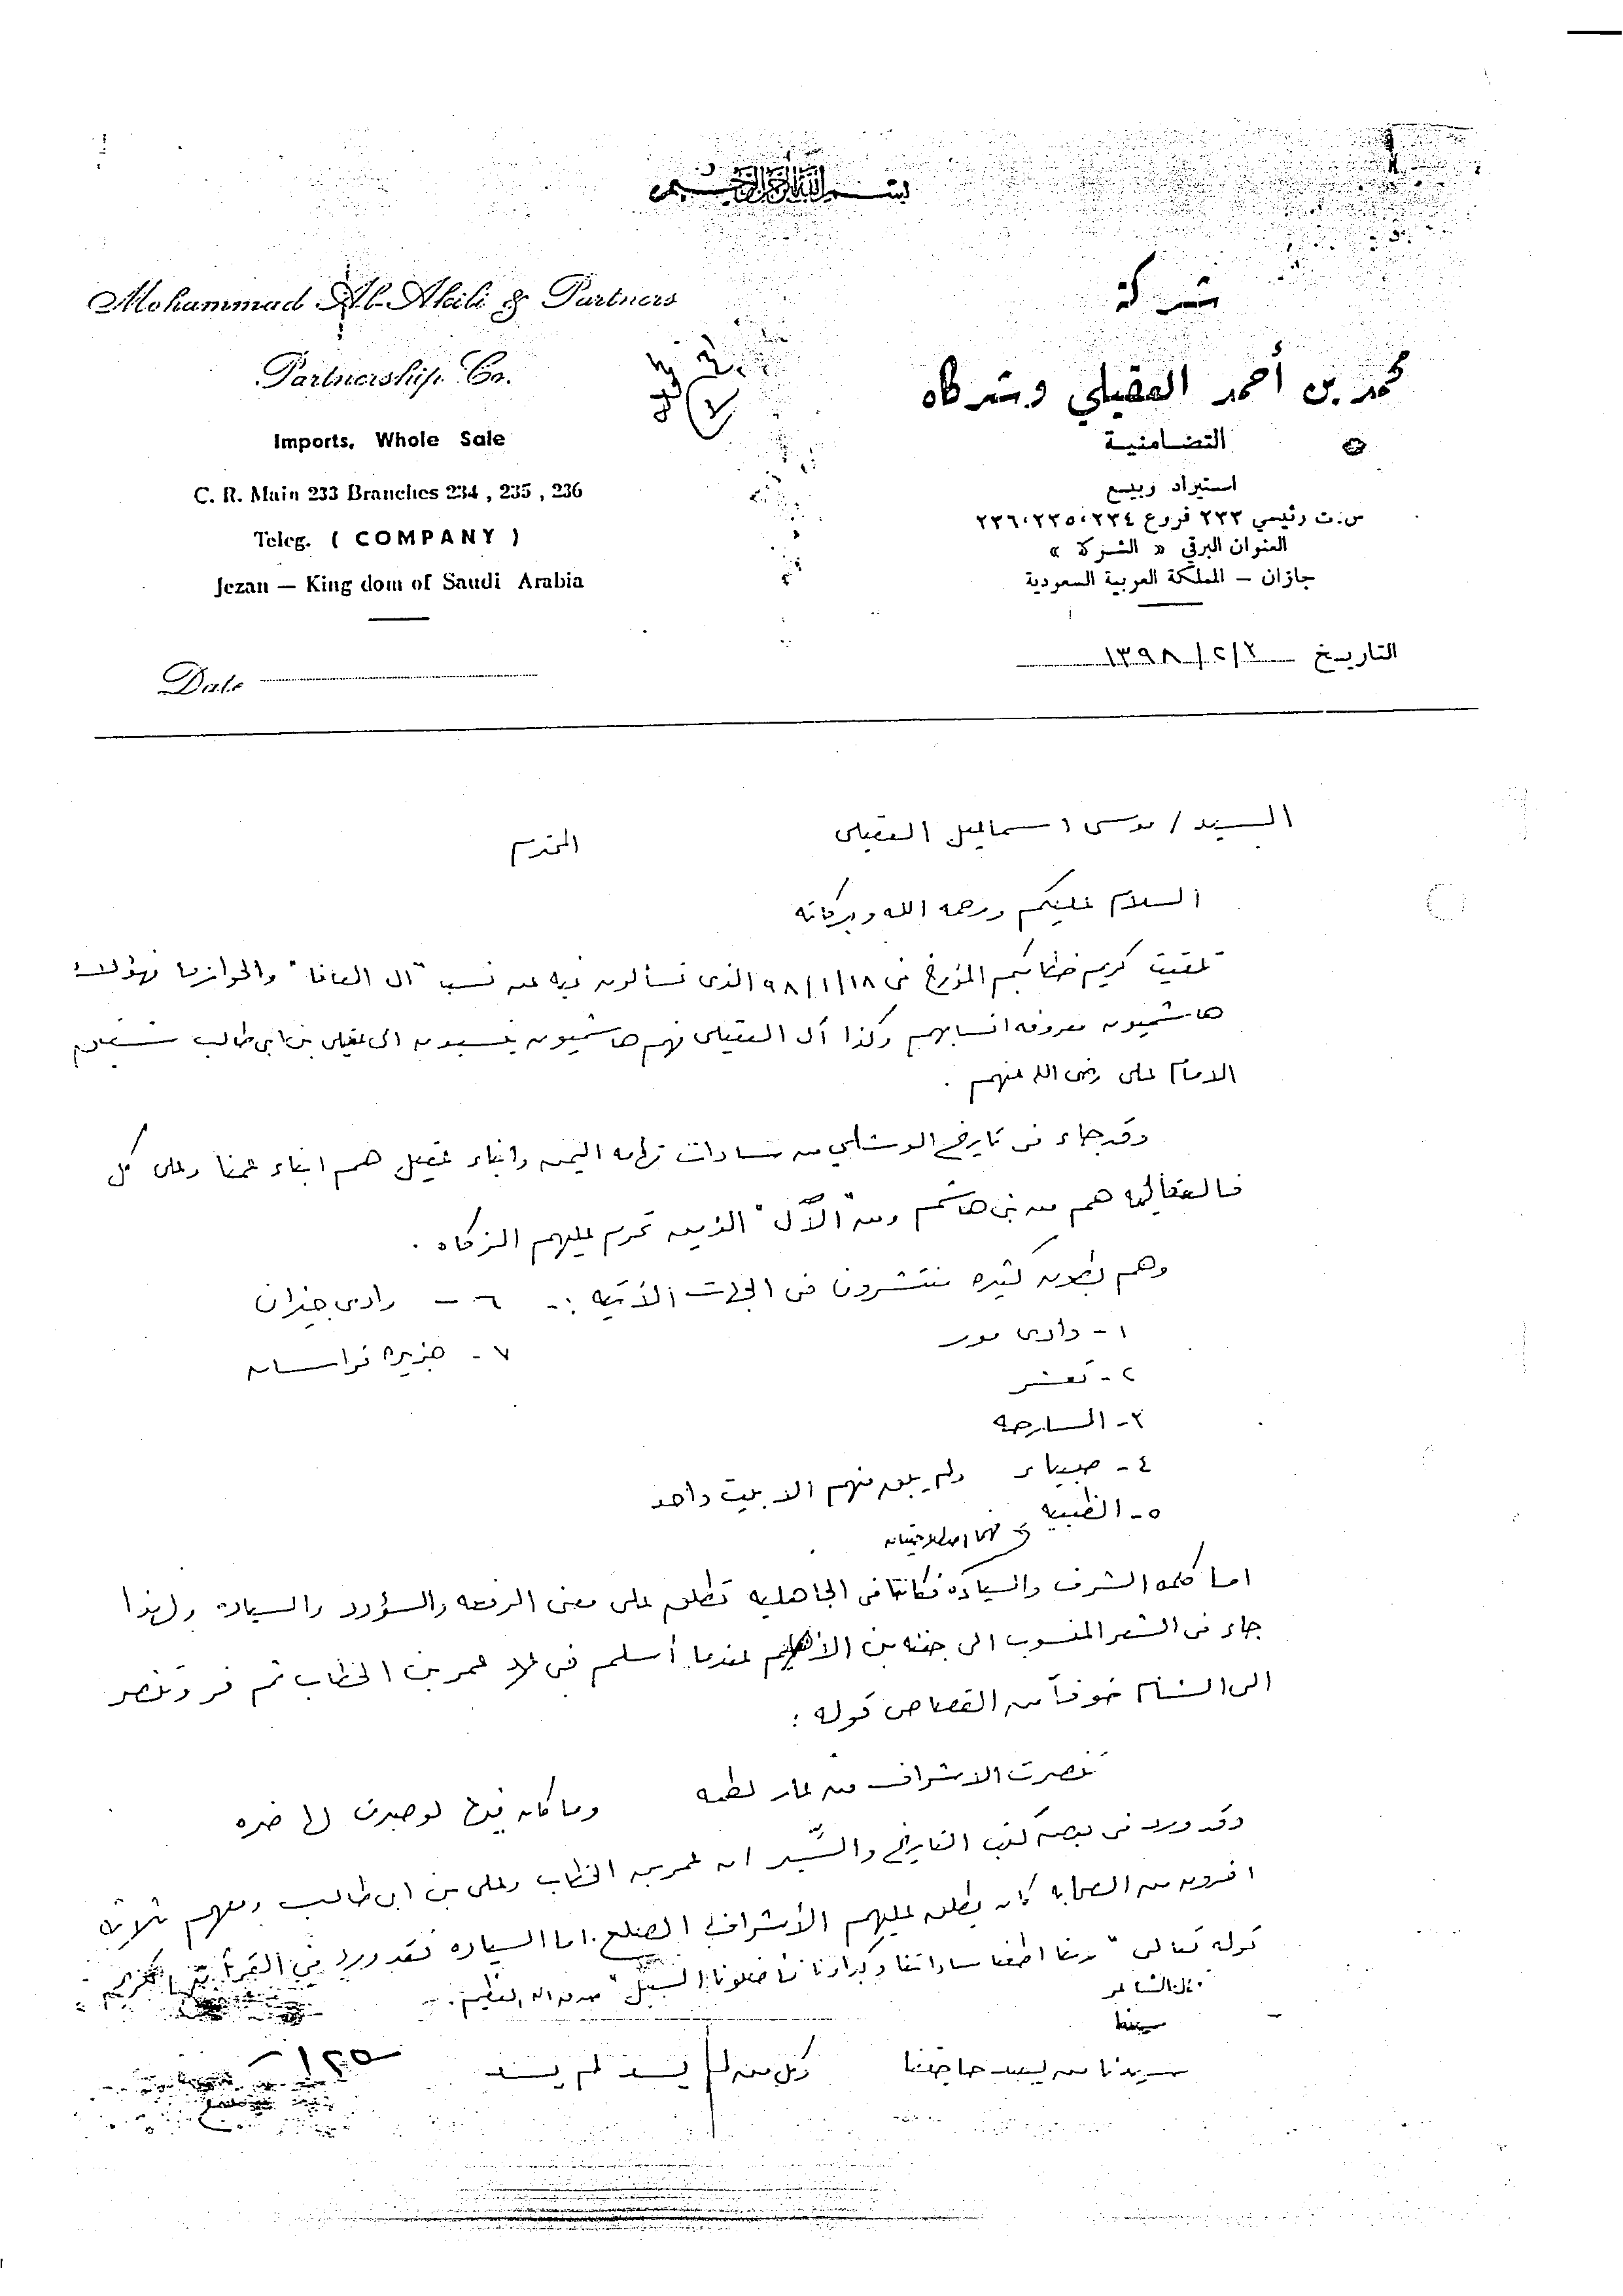 بسم الله الرحمن الرحيم
Mohammad Al-Akili & Partners
Partnership Co.
Imports, Whole Sale
C. R. Main 233 Branches 234 , 235 , 236
Teleg. ( COMPANY )
Jezan — King dom of Saudi Arabia
Date
شركة
محمد بن أحمد العقيلي وشركاه
التضامنية
استيراد وبيع
س.ت رئيسي ٢٣٣ فروع ٢٣٤،٢٣٥،٢٣٦
العنوان البرقي « الشركة »
جازان – المملكة العربية السعودية
التاريخ ٢/٢/١٣٩٨
السيد / موسى اسماعيل العقيلى المحترم
السلام عليكم ورحمه الله وبركاته
تلقيت كريم خطابكم المؤرخ فى ٩٨/١/١٨ الذى تسألون فيه عن نسب "ال العافا" والحوازما فهؤلاء
هاشميون معروفه انسابهم وكذا آل العقيلى فهم هاشميون ينسبون الى عقيل بن ابى طالب شقيق
الامام على رضى الله عنهم .
وقد جاء فى تاريخ الوشلي من سادات تهامه اليمن وابناء عقيل هم ابناء عمنا وعلى كل
فالعقاليه هم من بنى هاشم ومن "الآل" الذين تحرم عليهم الزكاه .
وهم بطون كثيره منتشرون فى الجهات الأتيه :-
١- وادى مور
٢- تعشر
٣- السارحه
٤- صبياء ولم يبق منهم الا بيت واحد
٥- الظبيه
٦- وادى جيزان
٧- جزيره فراسان
اما كلمه الشرف والسياده فكانتا فى الجاهليه تطلق على معنى الرفعه والسؤدد والسياده ولهذا
جاء فى الشعر المنسوب الى جفنه بن الأيهم عندما أسلم فى عهد عمر بن الخطاب ثم فر وتنصر
الى الشام خوفاً من القصاص قوله :
تنصرت الاشراف من عار لطمه وما كان فيها لو صبرت لها ضره
وقد ورد فى بعض كتب التاريخ والسِّير ان عمر بن الخطاب وعلى بن ابى طالب ومعهم ثلاثه
اخرون من الصحابه كان يطلق عليهم الأشراف الصلع . اما السياده فقد ورد في القرآن الكريم
قوله تعالى "ربنا اطعنا ساداتنا وكبراءنا فأضلونا السبيل" صدق الله العظيم .
قال الشاعر
سيدنا من يسد حاجتنا وكل من لم يسد لم يسد
١٢٥